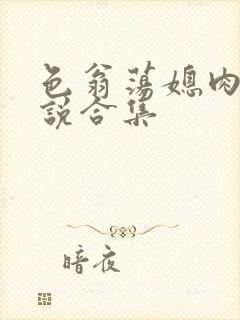 色翁荡媳肉
说合集
暗夜